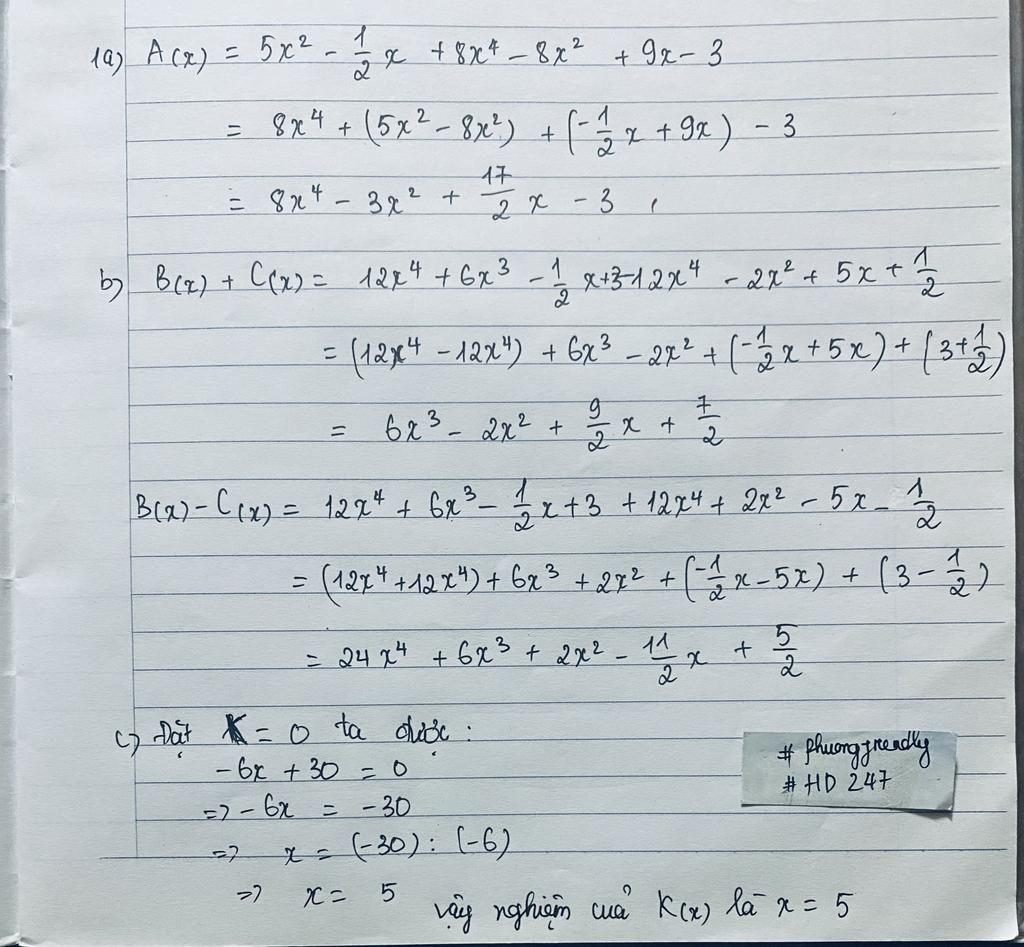 1a) A(x) = 5x² - 1/2 x + 8x⁴ - 8x² + 9x - 3
= 8x⁴ + (5x² - 8x²) + (-1/2 x + 9x) - 3
= 8x⁴ - 3x² + 17/2 x - 3
b) B(x) + C(x) = 12x⁴ + 6x³ - 1/2 x + 3 - 12x⁴ - 2x² + 5x + 1/2
= (12x⁴ - 12x⁴) + 6x³ - 2x² + (-1/2 x + 5x) + (3 + 1/2)
= 6x³ - 2x² + 9/2 x + 7/2
B(x) - C(x) = 12x⁴ + 6x³ - 1/2 x + 3 + 12x⁴ + 2x² - 5x - 1/2
= (12x⁴ + 12x⁴) + 6x³ + 2x² + (-1/2 x - 5x) + (3 - 1/2)
= 24x⁴ + 6x³ + 2x² - 11/2 x + 5/2
c) Đặt K = 0 ta được :
-6x + 30 = 0
=> -6x = -30
=> x = (-30) : (-6)
=> x = 5
Vậy nghiệm cuả K(x) là x = 5
# phuongfrendly
# HD 247